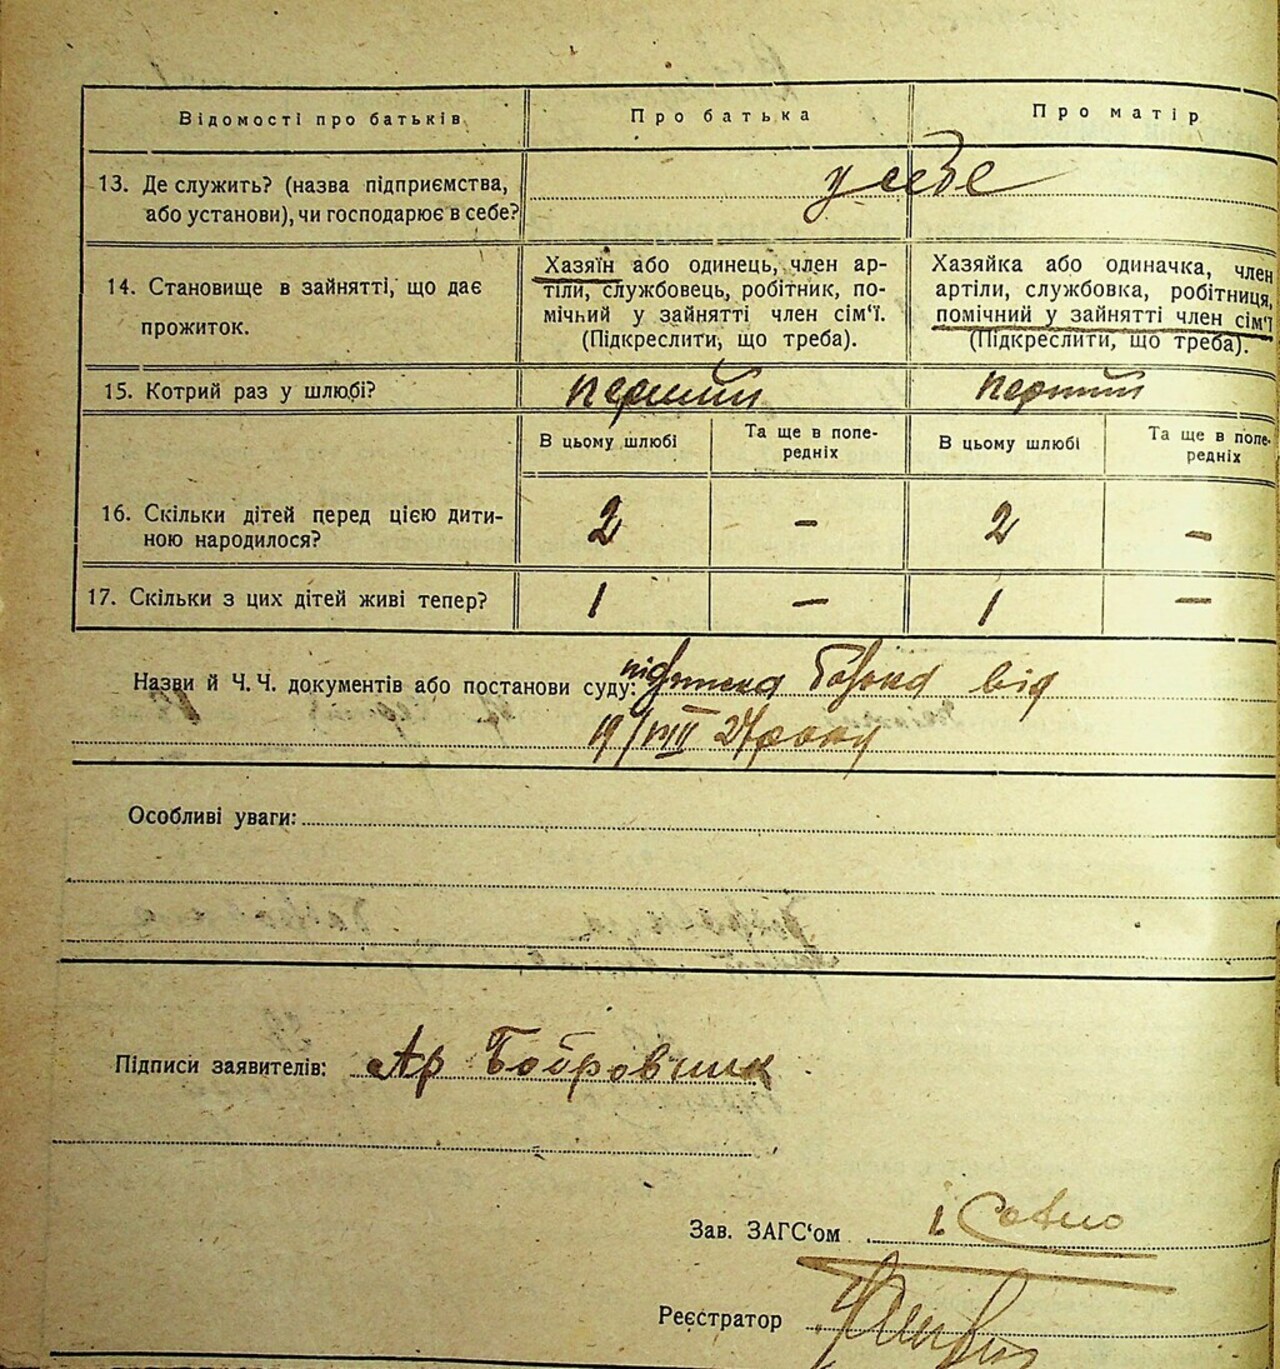 Відомості про батьків Про батька Про матір
13. Де служить? (назва підприємства, або установи), чи господарює в себе? у себе
14. Становище в зайнятті, що дає прожиток.
Хазяїн або одинець, член ар-
тіли, службовець, робітник, по-
мічний у зайнятті член сім'ї.
(Підкреслити, що треба).
Хазяйка або одиначка, член
артіли, службовка, робітниця,
помічний у зайнятті член сім'ї
(Підкреслити, що треба).
15. Котрий раз у шлюбі? перший перший
В цьому шлюбі Та ще в попе-
редніх В цьому шлюбі Та ще в попе-
редніх
16. Скільки дітей перед цією дити-
ною народилося? 2 – 2 –
17. Скільки з цих дітей живі тепер? 1 – 1 –
Назви й Ч. Ч. документів або постанови суду: від
19/VIII року
Особливі уваги:
Підписи заявителів: Ар Бобровник
Зав. ЗАГС'ом
Реєстратор